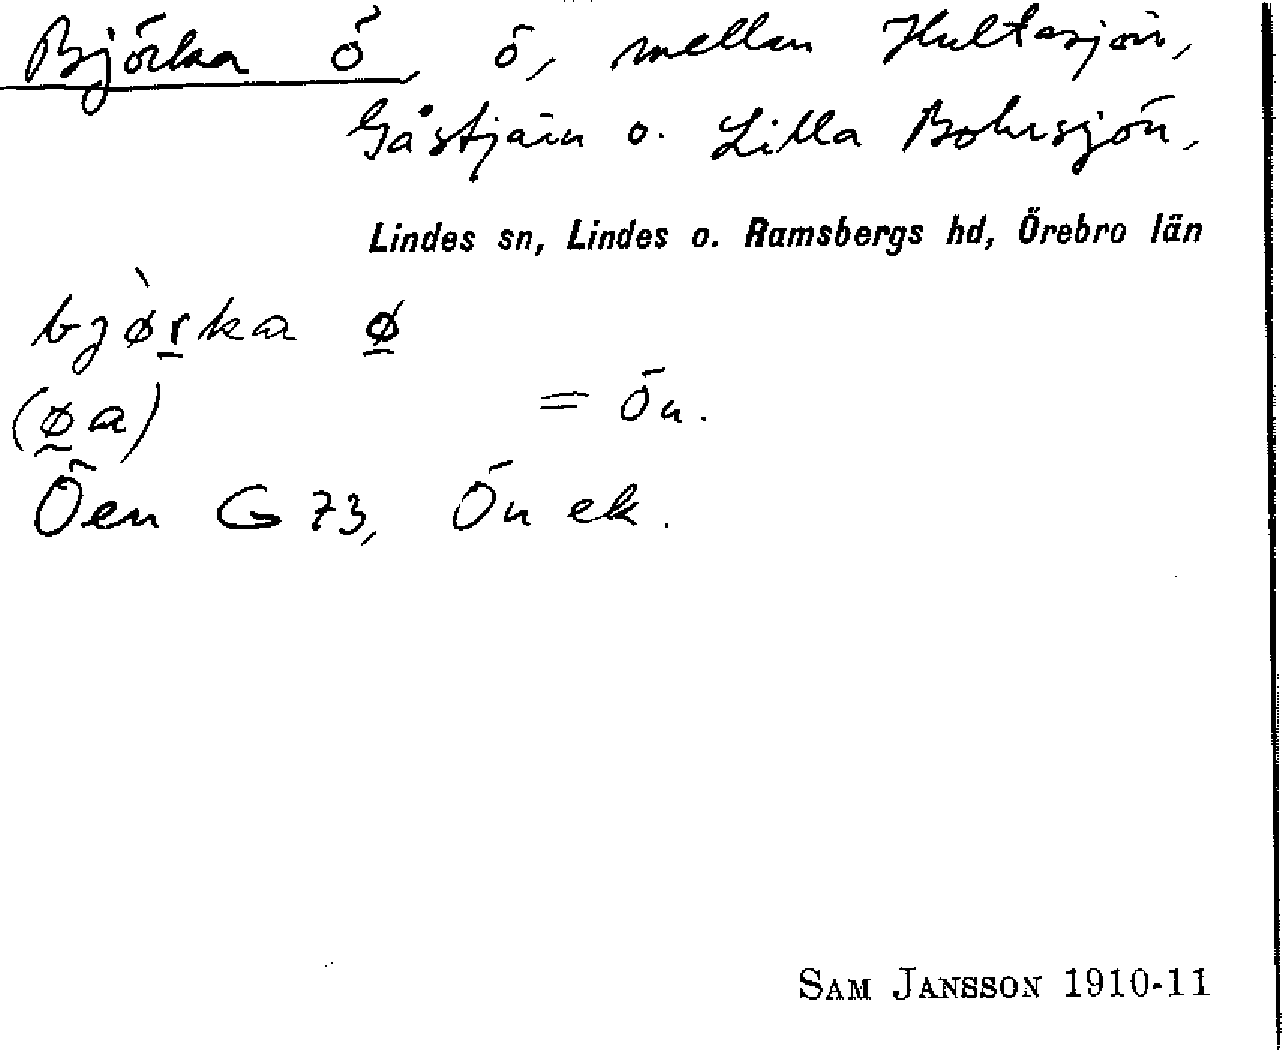 Björka ö, ö, mellan Hultasjön,
Gåstjärn o. Lilla Bohrsjön.
Lindes sn, Lindes o. Ramsbergs hd, Örebro län
bjø̀rka ø
(øa) = Ön.
Öen G 73, Ön ek.
SAM JANSSON 1910-11